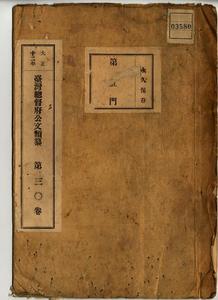 03580
永久保存
第五門
大正十二年
臺灣總督府公文類纂 第三〇卷